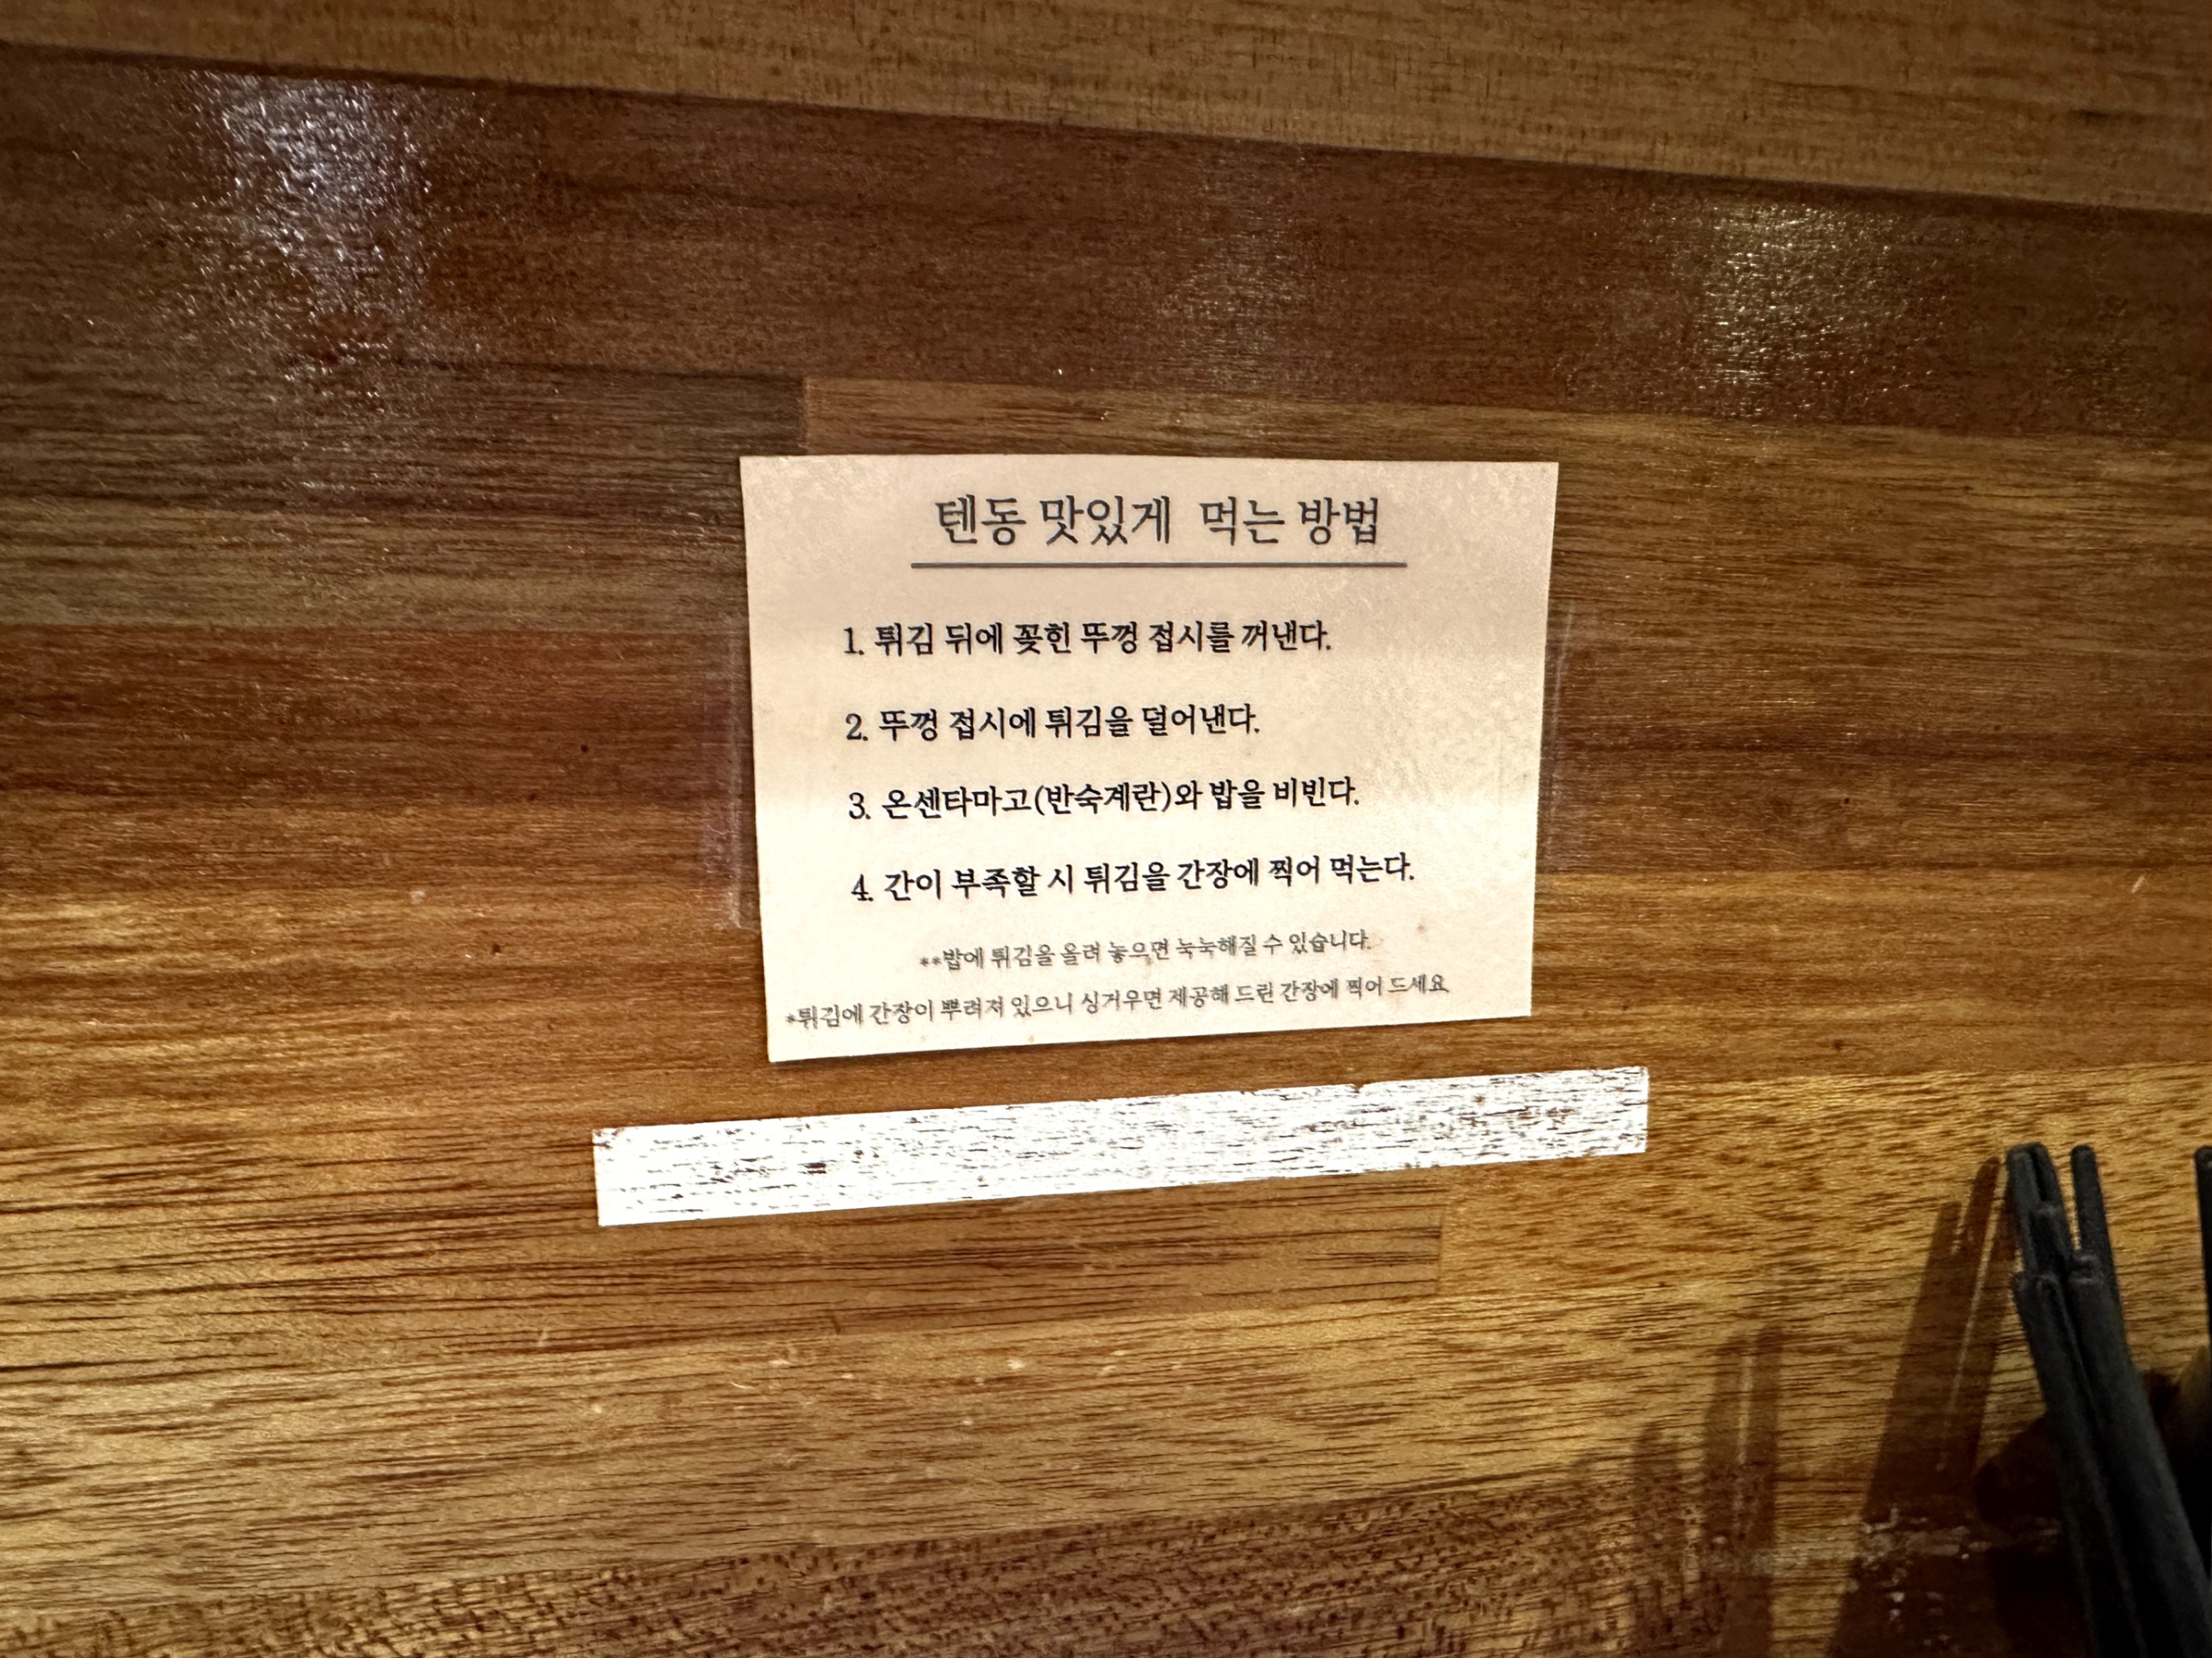 텐동 맛있게 먹는 방법
1. 튀김 뒤에 꽂힌 뚜껑 접시를 꺼낸다.
2. 뚜껑 접시에 튀김을 덜어낸다.
3. 온센타마고(반숙계란)와 밥을 비빈다.
4. 간이 부족할 시 튀김을 간장에 찍어 먹는다.
**밥에 튀김을 올려 놓으면 눅눅해질 수 있습니다.
*튀김에 간장이 뿌려져 있으니 싱거우면 제공해 드린 간장에 찍어 드세요.